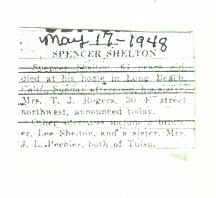 May 17-1948
SPENCER SHELTON
Spencer Shelton, 61 years old
died at his home in Long Beach,
Calif., Sunday afternoon, his sister,
Mrs. T. J. Rogers, 30 E street
northwest, announced today.
Other survivors include a broth-
er, Lee Shelton, and a sister, Mrs.
J. L. Peebler, both of Tulsa.